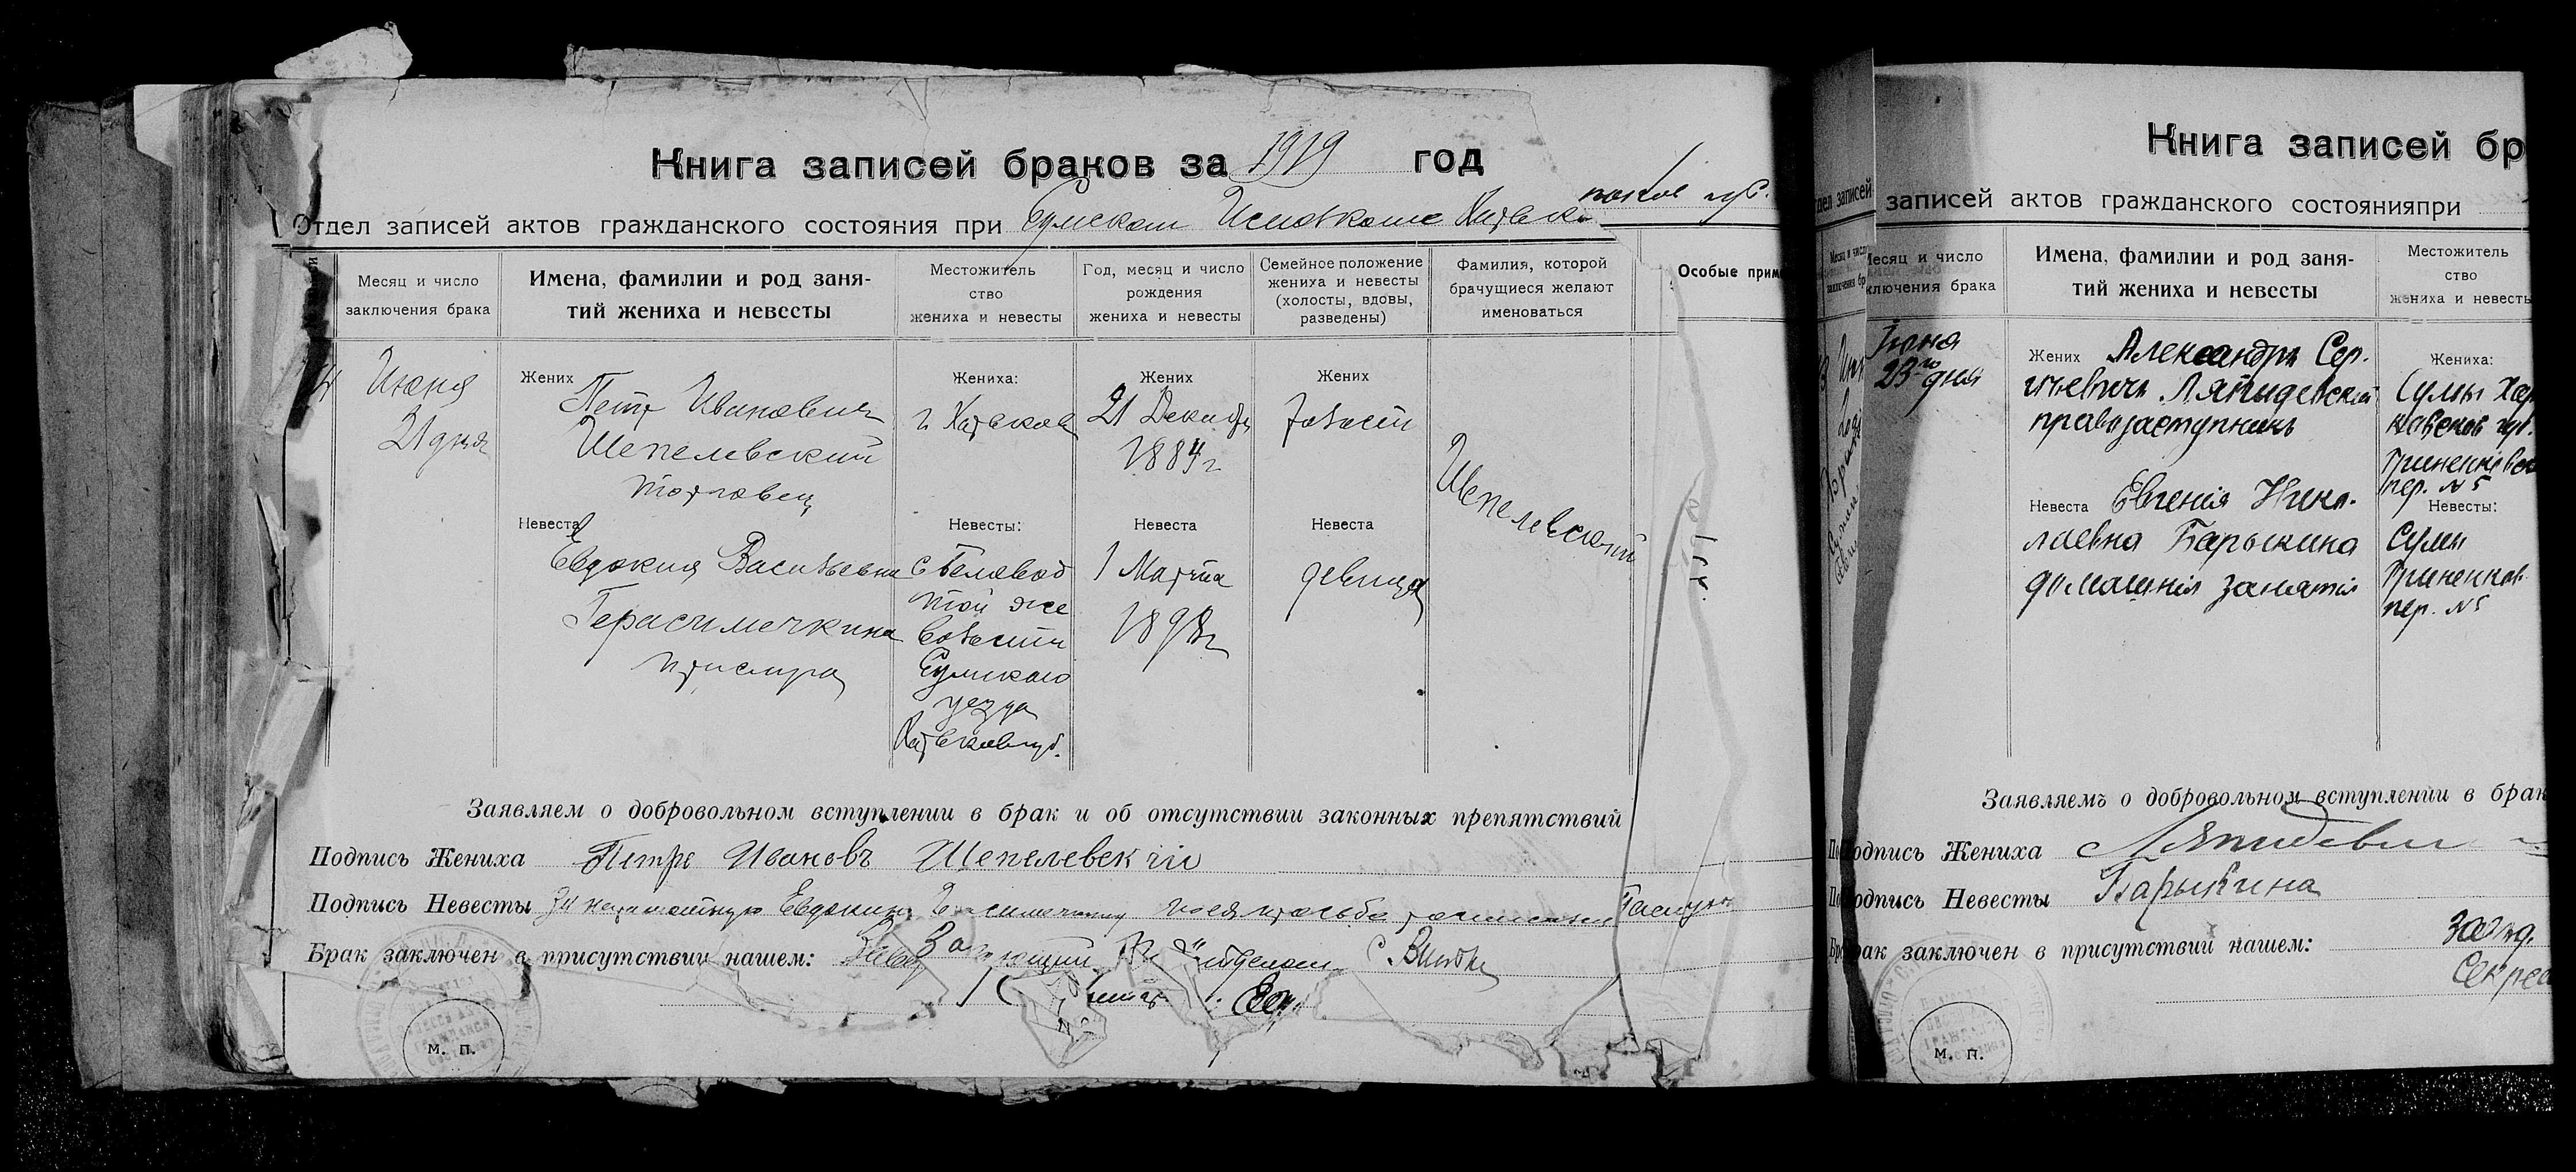 Книга записей браков за 1919 год
Отдел записей актов гражданского состояния при Сумском Исполкоме Харьковской губ.
Месяц и число
заключения брака
Имена, фамилии и род заня-
тий жениха и невесты
Местожитель
ство
жениха и невесты
Год, месяц и число
рождения
жениха и невесты
Семейное положение
жениха и невесты
(холосты, вдовы,
разведены)
Фамилия, которой
брачущиеся желают
именоваться
Особые прим
Июня
21 дня
Жених
Петр Иванович
Шепелевский
торговец
Жениха:
г. Харьков
Жених
21 Декабря
1884 г
Жених
холост
Невеста
Евдокия Васильевна
Герасимечкина
прислуга
Невесты:
с Беловод
той же
волости
Сумского
уезда
Харьков губ.
Невеста
1 Марта
1898 г
Невеста
девица
Шепелевский
Заявляем о добровольном вступлении в брак и об отсутствии законных препятствий
Подпись Жениха Петръ Ивановъ Шепелевскiй
Подпись Невесты За неграмотную Евдокию
Брак заключен в присутствии нашем:
отделом
М. П.
Книга записей бр
записей актов гражданского состоянияпри
Месяц и число
ключения брака
Имена, фамилии и род заня-
тий жениха и невесты
Местожитель
ство
жениха и невесты
Iюня
23го дня
Жених Александръ Сер-
гѣевичъ Ляпидевскiй
правозаступникъ
Жениха:
Сумы Хар
ковской губ.
пер. № 5
Невеста Евгенiя Нико-
лаевна Барыкина
домашнiя занятiя
Невесты:
Сумы
пер. № 5
Заявляемъ о добровольном вступлении в брак
Подпись Жениха
Подпись Невесты Барыкина
Брак заключен в присутствий нашем:
Завѣд.
Секре
М. П.